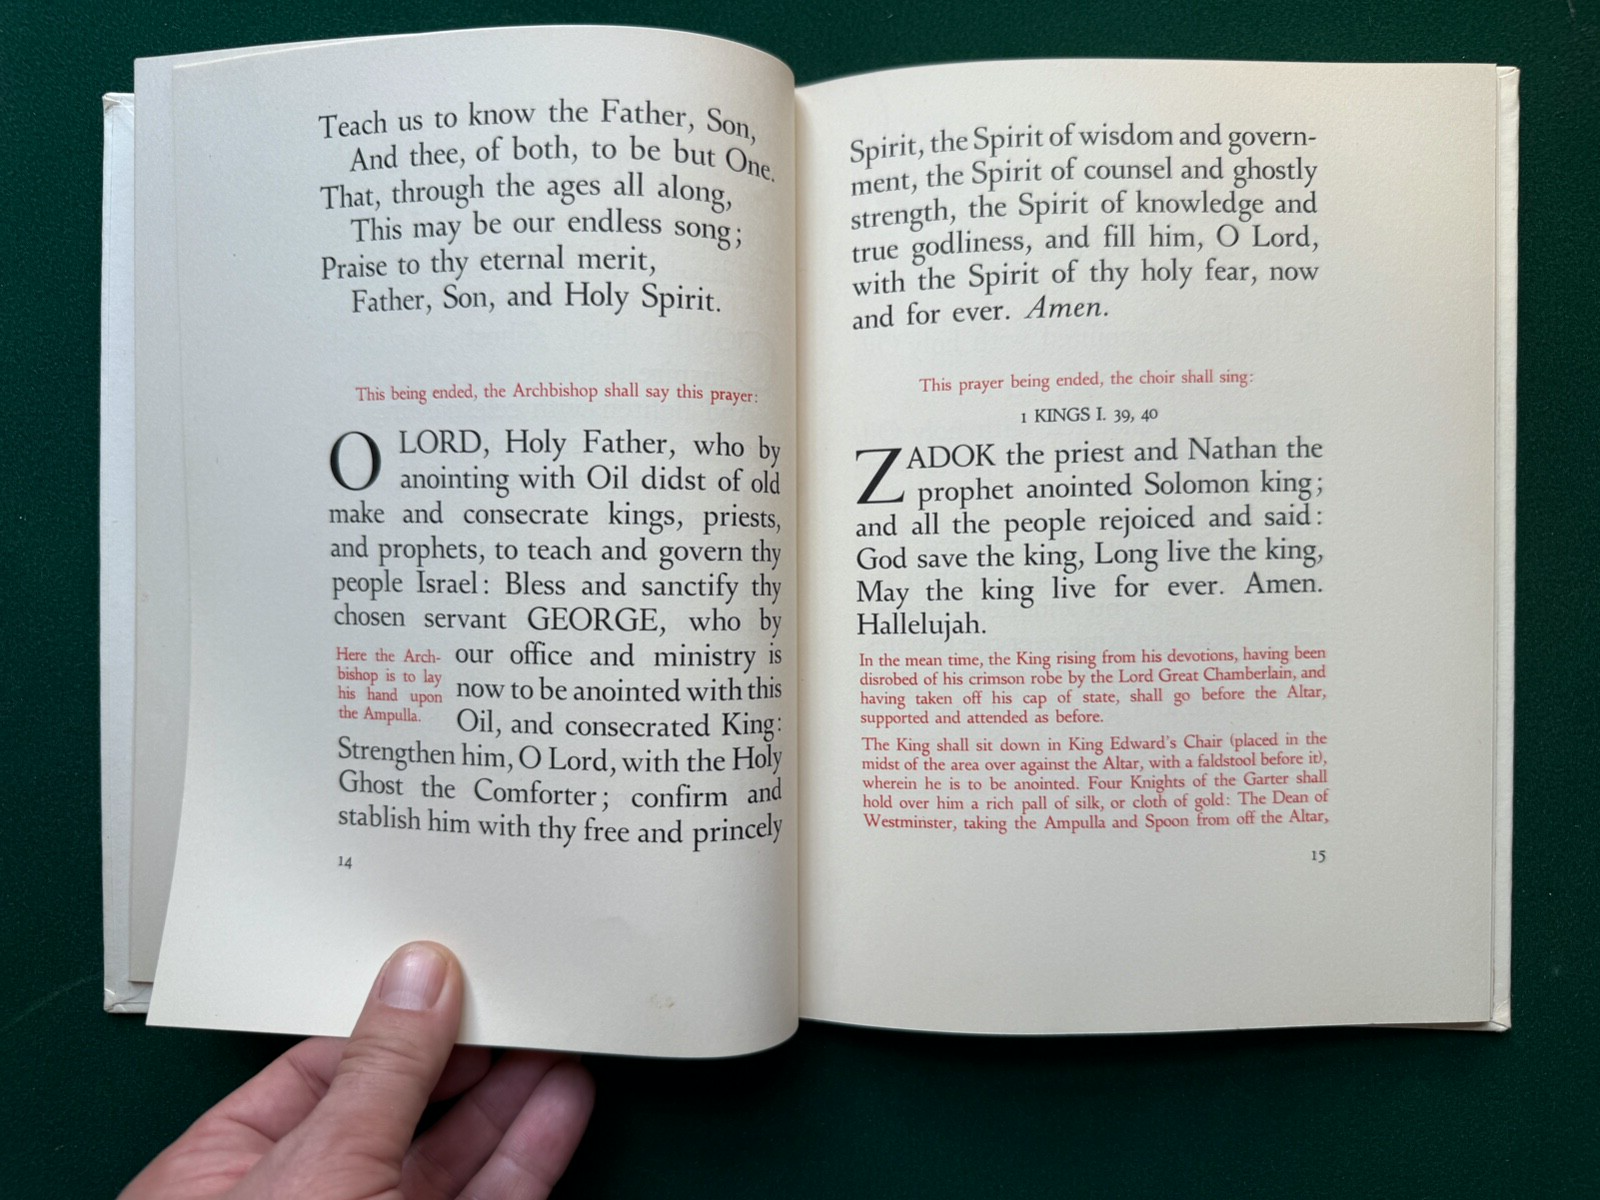 Teach us to know the Father, Son,
And thee, of both, to be but One.
That, through the ages all along,
This may be our endless song;
Praise to thy eternal merit,
Father, Son, and Holy Spirit.
This being ended, the Archbishop shall say this prayer:
O LORD, Holy Father, who by
anointing with Oil didst of old
make and consecrate kings, priests,
and prophets, to teach and govern thy
people Israel: Bless and sanctify thy
chosen servant GEORGE, who by
our office and ministry is
now to be anointed with this
Oil, and consecrated King:
Here the Arch-
bishop is to lay
his hand upon
the Ampulla.
Strengthen him, O Lord, with the Holy
Ghost the Comforter; confirm and
stablish him with thy free and princely
14
Spirit, the Spirit of wisdom and govern-
ment, the Spirit of counsel and ghostly
strength, the Spirit of knowledge and
true godliness, and fill him, O Lord,
with the Spirit of thy holy fear, now
and for ever. Amen.
This prayer being ended, the choir shall sing:
1 KINGS I. 39, 40
ZADOK the priest and Nathan the
prophet anointed Solomon king;
and all the people rejoiced and said:
God save the king, Long live the king,
May the king live for ever. Amen.
Hallelujah.
In the mean time, the King rising from his devotions, having been
disrobed of his crimson robe by the Lord Great Chamberlain, and
having taken off his cap of state, shall go before the Altar,
supported and attended as before.
The King shall sit down in King Edward's Chair (placed in the
midst of the area over against the Altar, with a faldstool before it),
wherein he is to be anointed. Four Knights of the Garter shall
hold over him a rich pall of silk, or cloth of gold: The Dean of
Westminster, taking the Ampulla and Spoon from off the Altar,
15